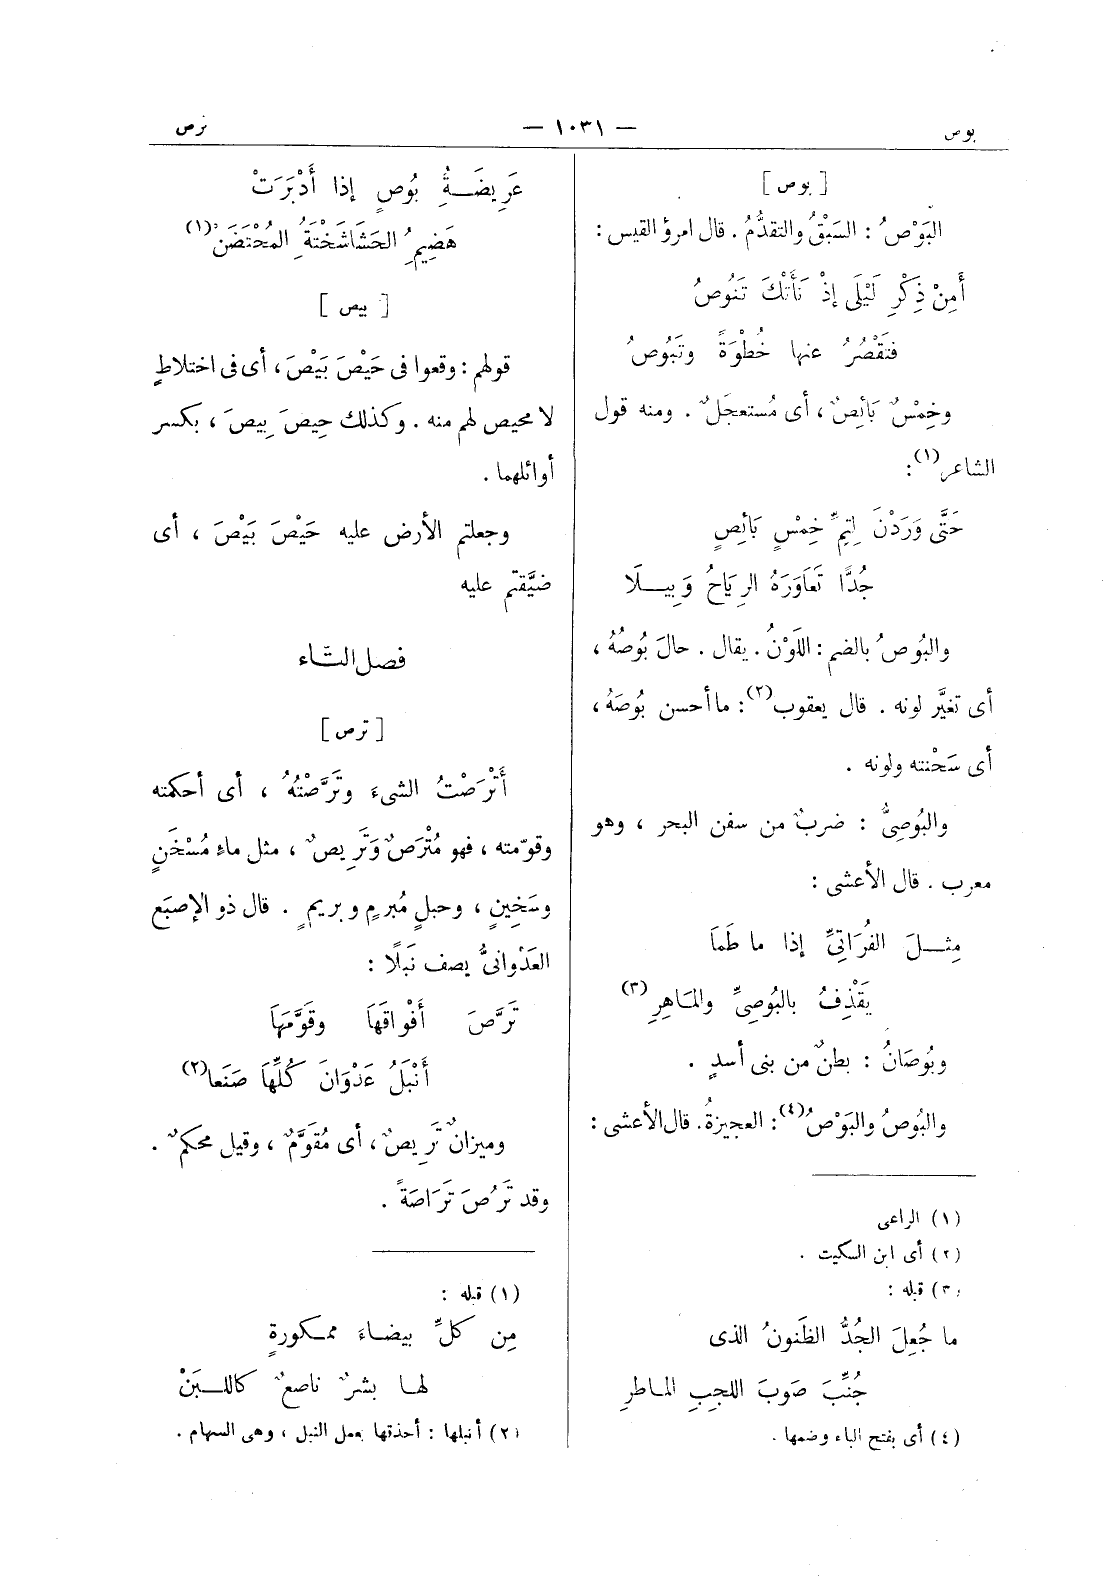 بوص
— ١٠٣١ —
ترص
[ بوص ]
البَوْصُ : السَبْقُ والتقدُّمُ . قال امرؤ القيس :
أَمِنْ ذِكْرِ لَيْلَى إذْ نَأَتْكَ تَنُوصُ
فتَقْصُرُ عنها خُطْوَةً وتَبُوصُ
وخِمْسٌ بَائِصٌ ، أى مُستعجَلٌ . ومنه قول
الشاعر(١) :
حَتَّى وَرَدْنَ لِتِمِّ خِمْسٍ بَائِصٍ
جُدًّا تَعَاوَرَهُ الرِيَاحُ وَبِيلَا
والبُوصُ بالضم : اللَوْنُ . يقال . حالَ بُوصُهُ ،
أى تغيَّر لونه . قال يعقوب(٢) : ما أحسن بُوصَهُ ،
أى سَحْنته ولونه .
والبُوصِىُّ : ضربٌ من سفن البحر ، وهو
معرب . قال الأعشى :
مِثلَ الفُرَاتِىِّ إذا ما طَمَا
يَقْذِفُ بالبُوصِىِّ والمَاهِرِ(٣)
وبُوصَانُ : بطنٌ من بنى أسدٍ .
والبُوصُ والبَوْصُ(٤) : العجيزةُ . قال الأعشى :
(١) الراعى
(٢) أى ابن السكيت .
(٣) قبله :
ما جُعِلَ الجُدُّ الظَنونُ الذى
جُنِّبَ صَوبَ اللجِبِ الماطرِ
(٤) أى بفتح الباء وضمها .
عَرِيضَةُِ بُوصٍ إذا أَدْبَرَتْ
هَضِيمُِ الحَشَا شَخْتَةُِ المُحْتَضَنْ(١)
[ بيص ]
قولهم : وقعوا فى حَيْصَ بَيْصَ ، أى فى اختلاطٍ
لا محيص لهم منه . وكذلك حِيصَ بِيصَ ، بكسر
أوائلهما .
وجعلتم الأرض عليه حَيْصَ بَيْصَ ، أى
ضيَّقتم عليه
فصل التَّاء
[ ترص ]
أَتْرَصْتُ الشىءَ وتَرَّصْتُهُ ، أى أحكمته
وقوّمته ، فهو مُتْرَصٌ وَتَرِيصٌ ، مثل ماءٍ مُسْخَنٍ
وسَخِينٍ ، وحبلٍ مُبرمٍ وبريمٍ . قال ذو الإصبَع
العَدْوانىُّ يصف نَبلًا :
تَرَّصَ أَفْوَاقَهَا وقَوَّمَهَا
أَنْبَلُ عَدْوَانَ كُلِّهَا صَنَعا(٢)
وميزانٌ تَرِيصٌ ، أى مُقَوَّمٌ ، وقيل محكمٌ .
وقد تَرُصَ تَرَاصَةً .
(١) قبله :
مِن كلِّ بيضاءَ ممكورةٍ
لها بشرٌ ناصعٌ كاللبَنْ
(٢) أنبلها : أحذقها بعمل النبل ، وهى السهام .